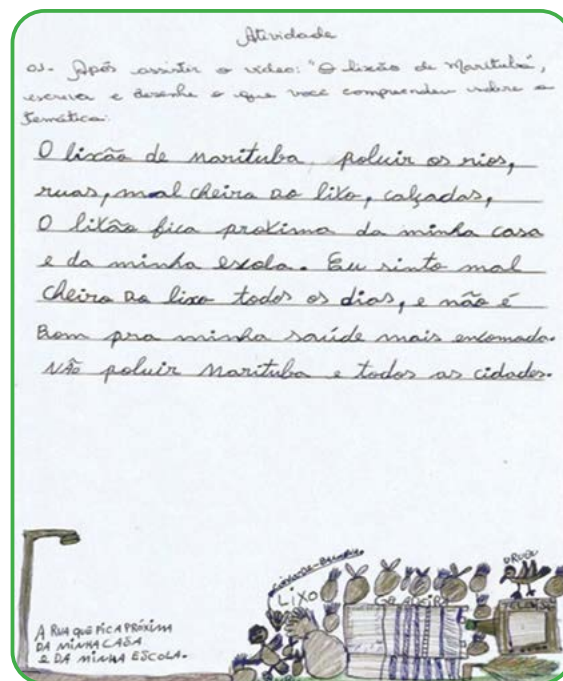 Atividade
01- Após assistir o vídeo: "O lixão de Marituba",
escreva e desenhe o que você compreendeu sobre a
temática:
O lixão de marituba poluir os rios,
ruas, mal cheira do lixo, calçadas,
O lixão fica proxima da minha casa
e da minha escola. Eu sinto mal
cheiro do lixo todos os dias, e não é
Bom pra minha saúde mais encomoda.
NÃO poluir Marituba e todos as cidades.
URUBU
LIXO
GELADEIRA
A RUA QUE FICA PRÓXIMA
DA MINHA CASA
E DA MINHA ESCOLA.